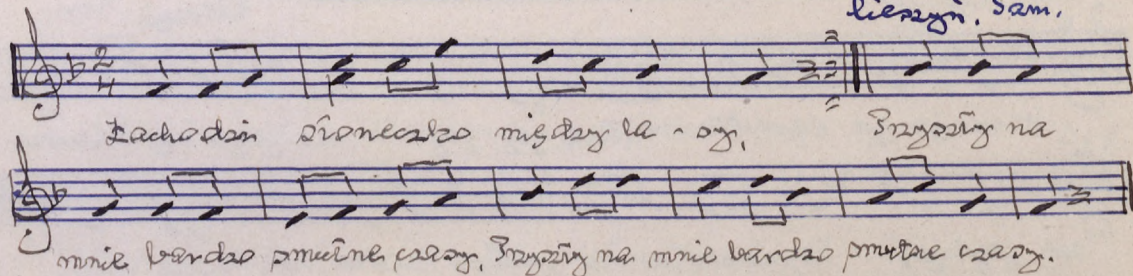 Cieszyń. Sam.
2 4
Zachodzi słoneczko między la - sy, Przyszły na
mnie bardzo smutne czasy, Przyszły na mnie bardzo smutne czasy.